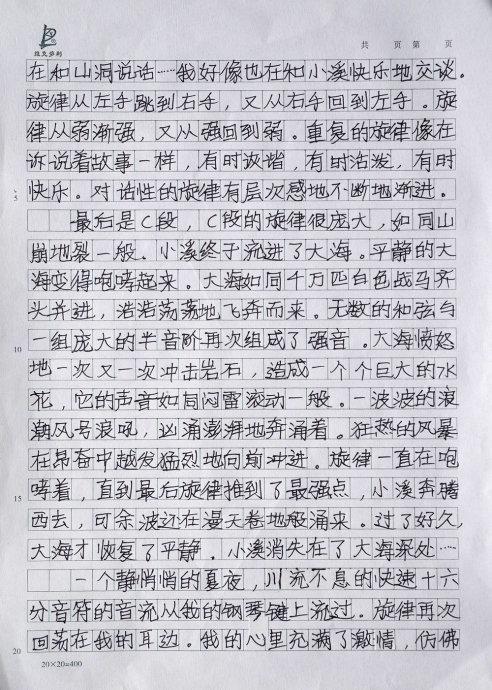 维也多利
共 页 第 页
在和山洞说话……我好像也在和小溪快乐地交谈。
旋律从左手跳到右手，又从右手回到左手。旋
律从弱渐强，又从强回到弱。重复的旋律像在
诉说着故事一样，有时诙谐，有时活泼，有时
快乐。对话性的旋律有层次感地不断地渐进。
5
最后是C段，C段的旋律很庞大，如同山
崩地裂一般。小溪终于流进了大海。平静的大
海变得咆哮起来。大海如同千万匹白色战马齐
头并进，浩浩荡荡地飞奔而来。无数的和弦与
一组庞大的半音阶再次组成了强音。大海愤怒
10
地一次又一次冲击岩石，造成一个个巨大的水
花，它的声音如同闷雷滚动一般。一波波的浪
潮风号浪吼，汹涌澎湃地奔涌着。狂热的风暴
在昂奋中越发猛烈地向前冲进。旋律一直在咆
哮着，直到最后旋律推到了最强点，小溪奔腾
15
西去，可余波还在漫天卷地般涌来。过了好久，
大海才恢复了平静。小溪消失在了大海深处……
一个静悄悄的夏夜，川流不息的快速十六
分音符的音流从我的钢琴键上流过。旋律再次
回荡在我的耳边。我的心里充满了激情，仿佛
20
20×20=400